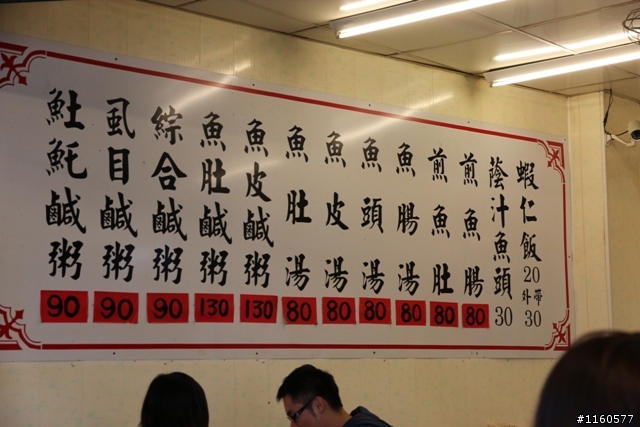 魠魠鹹粥 90
虱目鹹粥 90
綜合鹹粥 90
魚肚鹹粥 130
魚皮鹹粥 130
魚肚湯 80
魚皮湯 80
魚頭湯 80
魚腸湯 80
煎魚肚 80
煎魚腸 80
蔭汁魚頭 30
蝦仁飯 20
外帶 30
#1160577